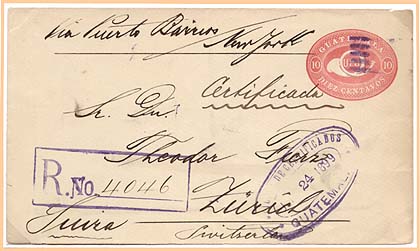 Via Puerto Barrios
New York
GUATEMALA
10 10
DIEZ CENTAVOS
Certificada
Sr. Dn.
Theodor
R. No. 4046
DE CERTIFICADOS
24 1899
GUATEMALA
Zürich
Suiza
Switzerland